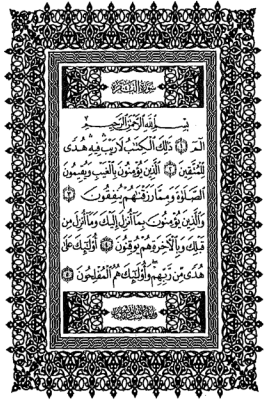 سورة البقرة
بسم الله الرحمن الرحيم
الٓمٓ ۝١ ذَٰلِكَ ٱلْكِتَٰبُ لَا رَيْبَ فِيهِ هُدًى
لِّلْمُتَّقِينَ ۝٢ ٱلَّذِينَ يُؤْمِنُونَ بِٱلْغَيْبِ وَيُقِيمُونَ
ٱلصَّلَوٰةَ وَمِمَّا رَزَقْنَٰهُمْ يُنفِقُونَ ۝٣
وَٱلَّذِينَ يُؤْمِنُونَ بِمَآ أُنزِلَ إِلَيْكَ وَمَآ أُنزِلَ مِن
قَبْلِكَ وَبِٱلْءَاخِرَةِ هُمْ يُوقِنُونَ ۝٤ أُو۟لَٰٓئِكَ عَلَىٰ
هُدًى مِّن رَّبِّهِمْ وَأُو۟لَٰٓئِكَ هُمُ ٱلْمُفْلِحُونَ ۝٥